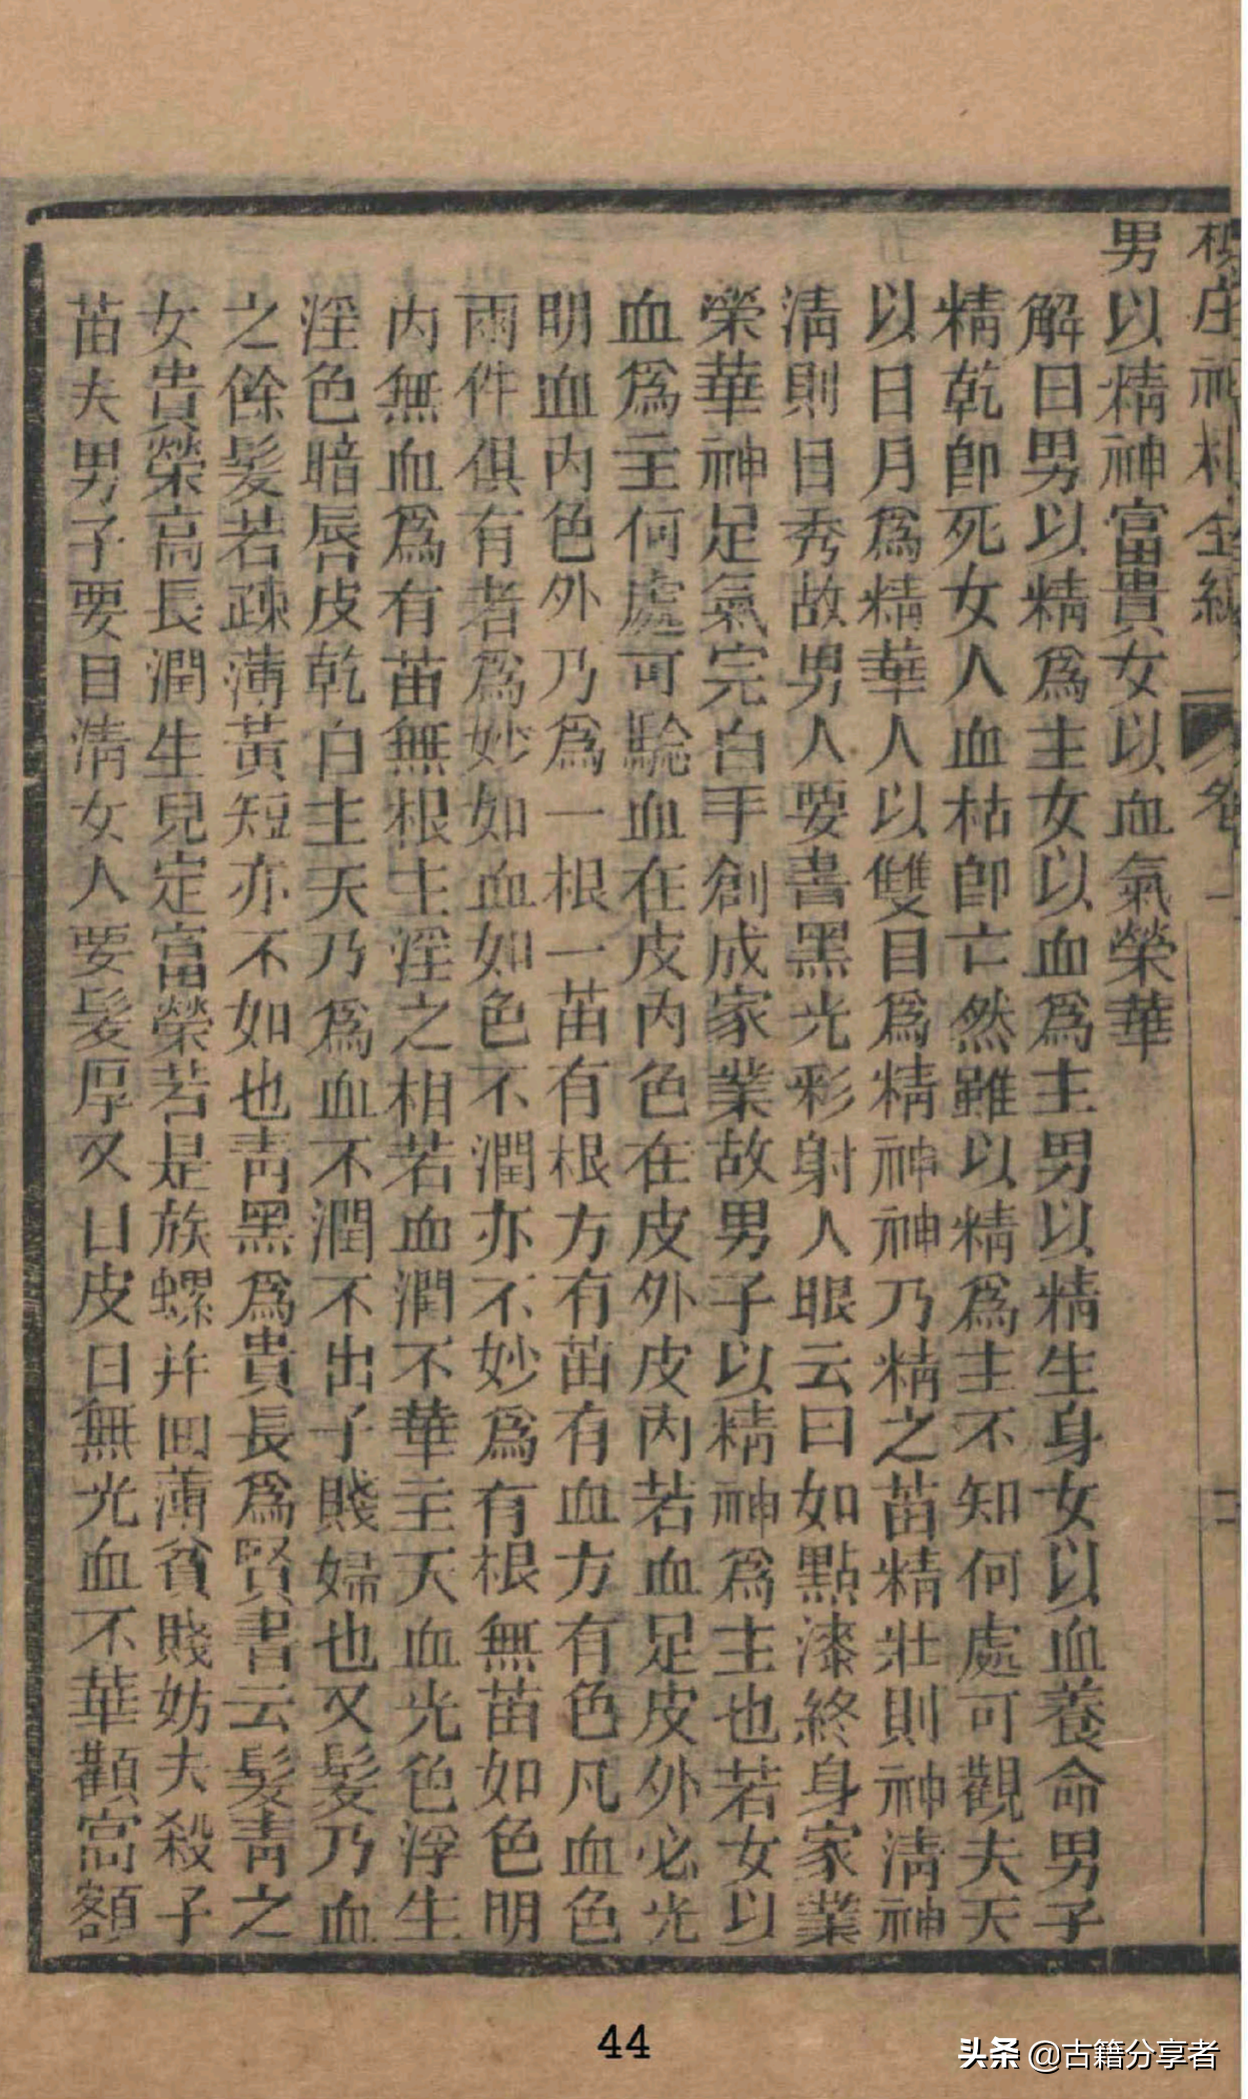 男以精神富貴女以血氣榮華
解曰男以精爲主女以血爲主男以精生身女以血養命男子
精乾卽死女人血枯卽亡然雖以精爲主不知何處可觀夫天
以日月爲精華人以雙目爲精神神乃精之苗精壯則神淸神
淸則目秀故男人要書黑光彩射人眼云曰如點漆終身家業
榮華神足氣完白手創成家業故男子以精神爲主也若女以
血爲主何處可驗血在皮內色在皮外皮內若血足皮外必光
明血內色外乃爲一根一苗有根方有苗有血方有色凡血色
兩件俱有者爲妙如血如色不潤亦不妙爲有根無苗如色明
內無血爲有苗無根主淫之相若血潤不華主夭血光色浮生
淫色暗唇皮乾白主夭乃爲血不潤不出子賤婦也又髮乃血
之餘髮若疎薄黃短亦不如也靑黑爲貴長爲賢書云髮靑之
女貴榮高長潤生兒定富榮若是族螺幷回薄貧賤妨夫殺子
苗夫男子要目淸女人要髮厚又曰皮白無光血不華顴高額
卷
44
头条 @古籍分享者